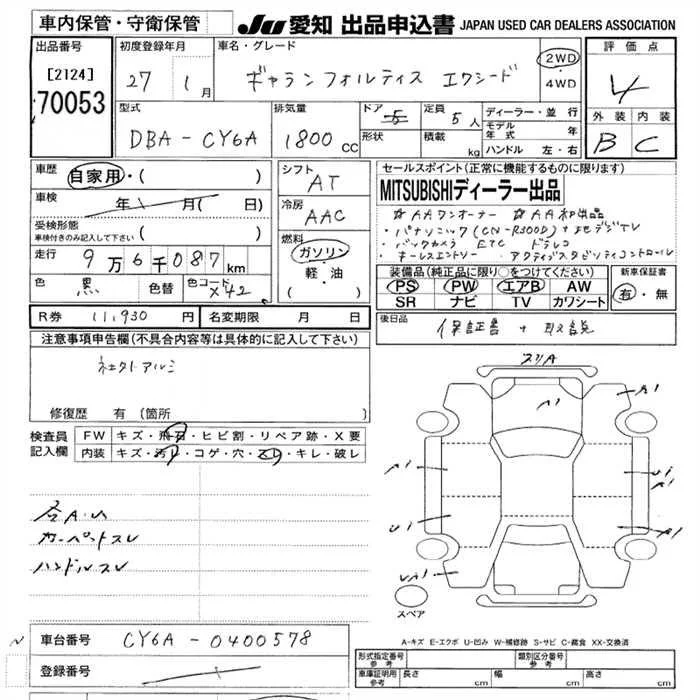 車内保管・守衛保管 JU 愛知 出品申込書 JAPAN USED CAR DEALERS ASSOCIATION
出品番号 初度登録年月 車名・グレード 2WD 評価点
[2124] 27 年 1月 ギャランフォルティス エクシード ・4WD 4
70053 型式 排気量 ドア 定員 ディーラー・並行 外装 内装
DBA-CY6A 1800cc 5 5人 モデル年式 年 B C
形状 積載 kg ハンドル 左・右
車歴 自家用・( ) シフト AT セールスポイント(正常に機能するものに限ります)
車検 年 月( 日) 冷房 AAC MITSUBISHIディーラー出品
受検形態 車検付きのみ記入して下さい ( )
・パナソニック(CN-R300D)+地デジTV
燃料 ・バックカメラ ETC ドラレコ
走行 9万6千087km ガソリン ・キーレスエントリー ・アクティブスタビリティコントロール
色 黒 色替 色コード X42 ・軽・油 装備品(純正品に限り○をつけてください) 新車保証書
PS PW エアB AW 有・無
SR ナビ TV カワシート
R券 11,930円 名変期限 月 日 後日品 保証書+取説
注意事項申告欄(不具合内容等は具体的に記入して下さい)
修復歴 有(箇所
検査員記入欄 FW キズ・飛石・ヒビ割・リペア跡・X要
内装 キズ・汚れ・コゲ・穴・スレ・キレ・破レ
スリA
A1 A1
A1 U1 A1
U1 A1
UA1
各A.U
カーペットスレ
ハンドルスレ
スペア
車台番号 CY6A-0400578
登録番号
A-キズ E-エクボ U-凹み W-補修跡 S-サビ C-腐食 XX-交換済
形式指定番号 参考 類別区分番号 参考
車庫証明用 参考 長さ cm 幅 cm 高さ cm